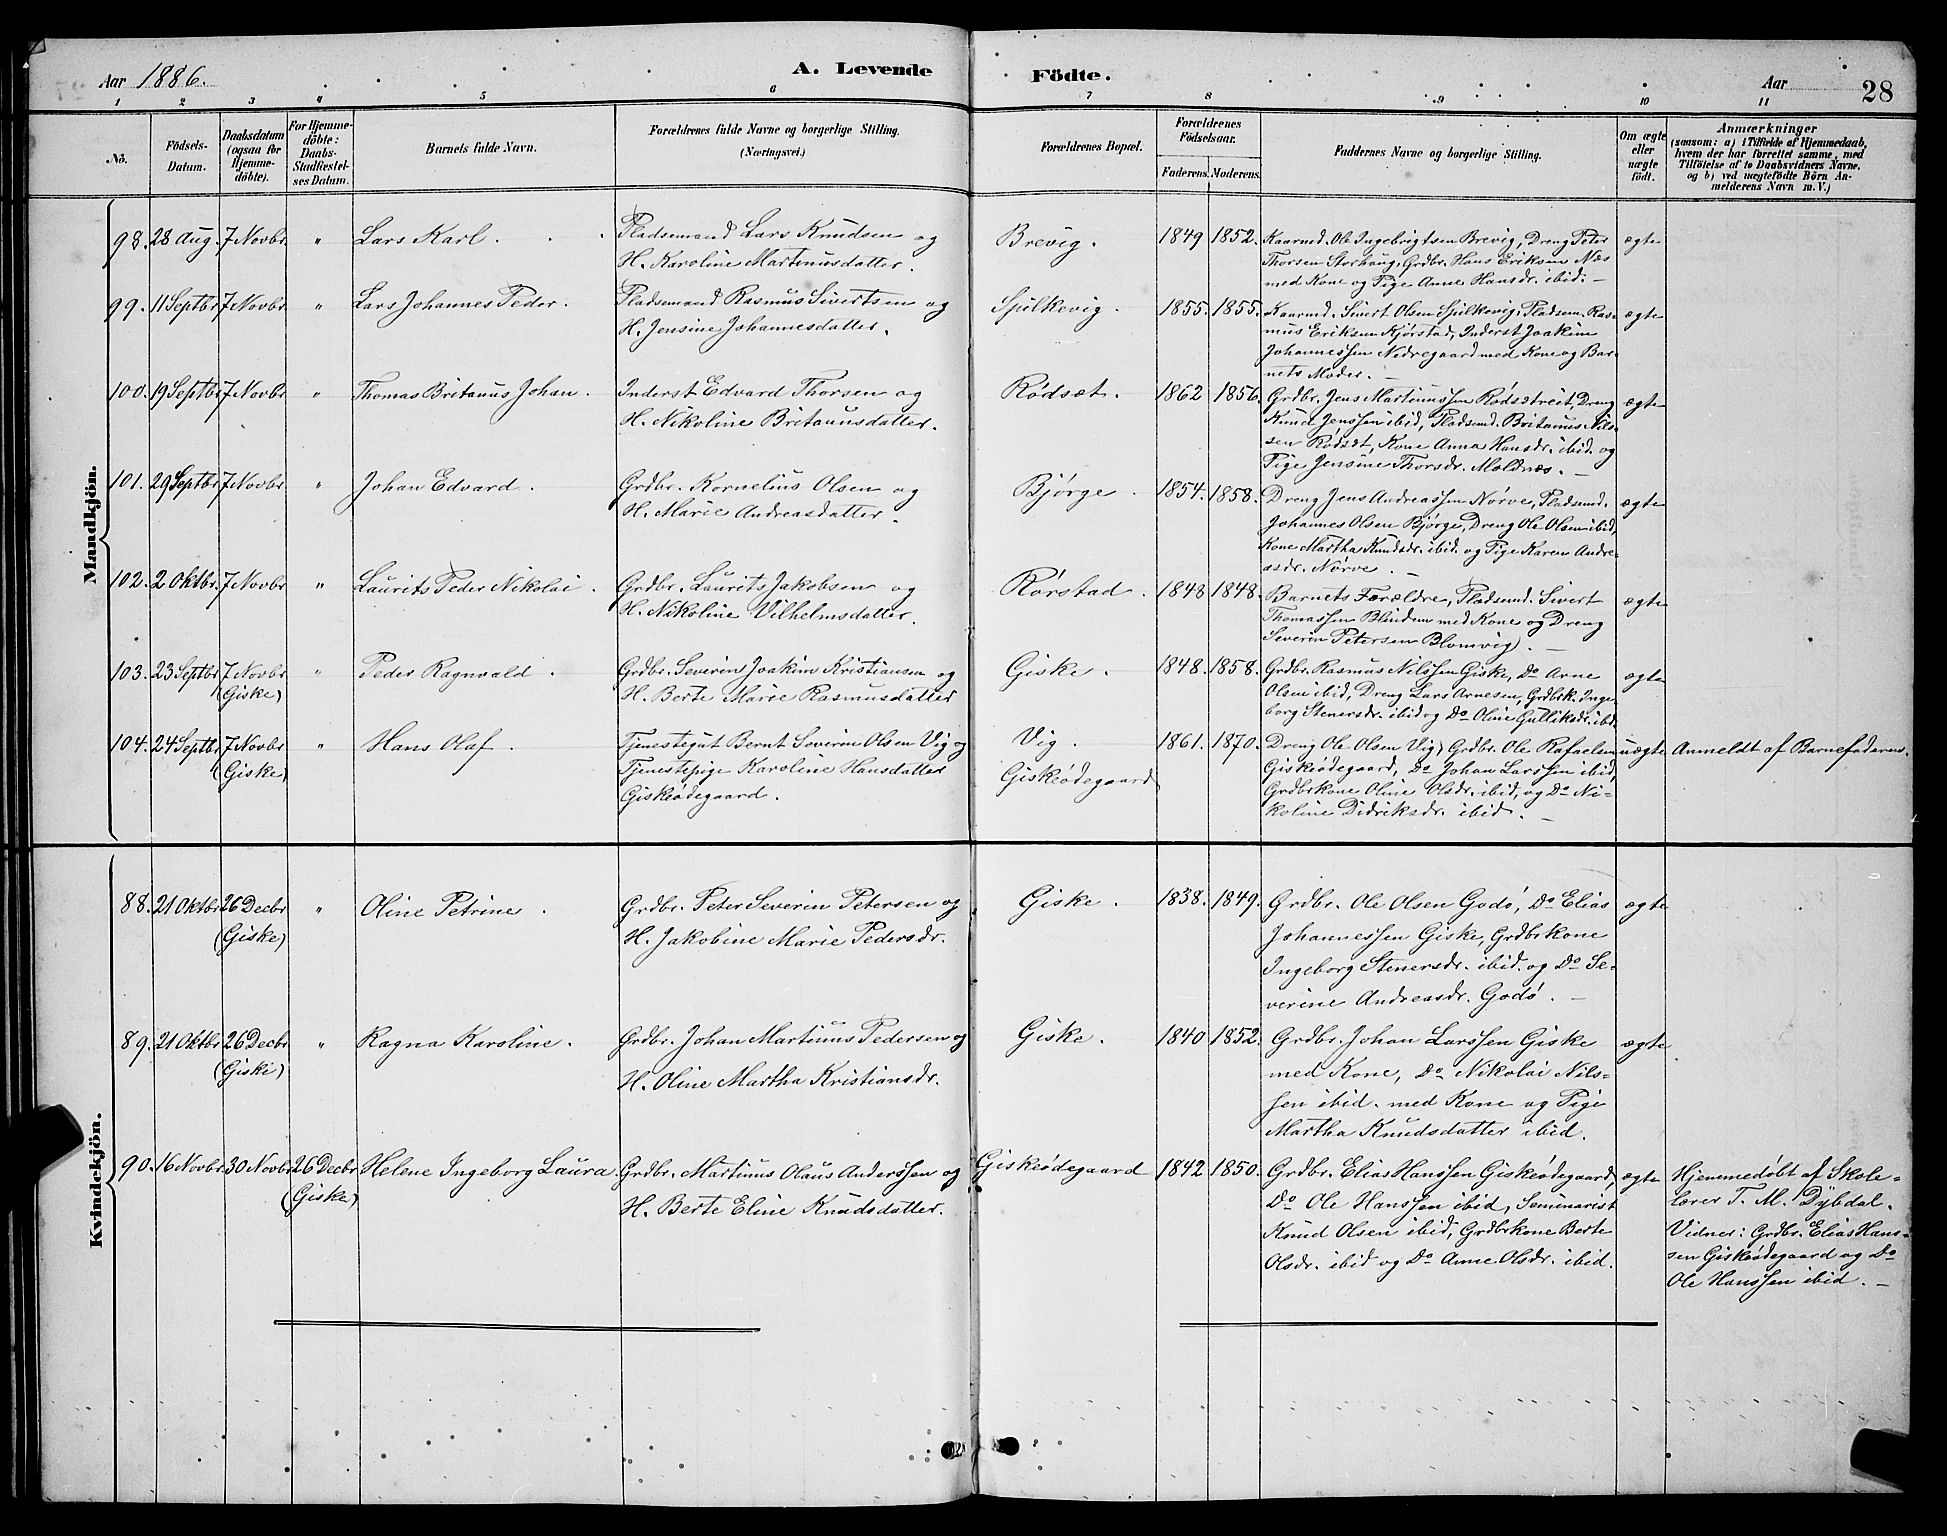 Aar 1886.
A. Levende Födte.
Aar
28
1 2 3 4 5 6 7 8 9 10 11
No.
Födsels-Datum.
Daabsdatum (ogsaa for Hjemme-döbte).
For Hjemme-döbte: Daabs-Stadfæstel-ses Datum.
Barnets fulde Navn.
Forældrenes fulde Navne og borgerlige Stilling.
(Næringsvei.)
Forældrenes Bopæl.
Forældrenes Födselsaar.
Faderens. Moderens.
Faddernes Navne og borgerlige Stilling.
Om ægte eller uægte født.
Anmærkninger
(saasom: a) i Tilfælde af Hjemmedaab, hvem der har forrettet samme, med Tilföielse af to Daabsvidners Navne, og b) ved uægtefödte Börn Anmelderens Navn m. V.)
Mandkjön.
98. 28 Aug. 7 Novbr. " Lars Karl.
Pladsemand Lars Knudsen og
H. Karoline Martinusdatter.
Brevig. 1849 1852.
Kaarmd. Ole Ingebrigtsen Brevig, Dreng Peter
Thorsen Storhaug, Grdbr. Hans Eriksen Næs
med Kone og Pige Anne Hansdr. ibid. —
ægte
99. 11 Septbr 7 Novbr " Lars Johannes Peder.
Pladsemand Rasmus Sivertsen og
H. Jensine Johannesdatter.
Spilkevig. 1855. 1855.
Kaarmd. Sivert Olsen Spilkevig, Pladsem. Ras-
mus Eriksen Kjørstad, Inderst Joakim
Johannessen Nedregaard med Kone og Bar-
nets Moder. —
ægte
100. 19 Septbr 7 Novbr " Thomas Britanus Johan.
Inderst Edvard Thorsen og
H. Nikoline Britanusdatter.
Rødsæt. 1862 1856.
Grdbr. Jens Martinussen Rødsætreit, Dreng
Knud Jenssen ibid, Pladsmd. Britanus Nils-
sen Rødsæt, Kone Anna Hansdr. ibid. og
Pige Jensine Thorsdr. Moldnæs. —
ægte
101. 29 Septbr 7 Novbr " Johan Edvard.
Grdbr. Kornelius Olsen og
H. Marie Andreasdatter.
Bjørge. 1854. 1858.
Dreng Jens Andreassen Nørve, Pladsmd.
Johannes Olsen Bjørge, Dreng Ole Olsen ibid,
Kone Martha Knudsdr. ibid. og Pige Karen Andre-
asdr. Nørve. —
ægte
102. 2 Oktbr. 7 Novbr " Laurits Peder Nikolai.
Grdbr. Laurits Jakobsen og
H. Nikoline Vilhelmsdatter.
Rørstad. 1848 1848.
Barnets Forældre, Pladsmd. Sivert
Thomassen Blindem med Kone og Dreng
Severin Petersen Blomvig. —
ægte
103. 23 Septbr 7 Novbr (Giske) " Peder Ragnvald.
Grdbr. Severin Joakim Kristiansen og
H. Berte Marie Rasmusdatter
Giske. 1848. 1858.
Grdbr. Rasmus Nilssen Giske, Do Arne
Olsen ibid, Dreng Lars Arnesen, Grdbrk. Inge-
borg Stenersdr. ibid og Do Oline Gulliksdr. ibd.
ægte
104. 24 Septbr 7 Novbr (Giske) " Hans Olaf.
Tjenestegut Bernt Severin Olsen Vig og
Tjenestepige Karoline Hansdatter
Giskeødegaard.
Vig.
Giskeødegaard
1861. 1870.
Dreng Ole Olsen Vig, Grdbr. Ole Rafaelsen
Giskeødegaard, Do Johan Larssen ibid,
Grdbrkone Oline Olsdr. ibid, og Do Ni-
koline Didriksdr. ibid. —
uægte
Anmeldt af Barnefaderen.
Kvindekjön.
88. 21 Oktbr 26 Decbr (Giske) " Oline Petrine.
Grdbr. Peter Severin Petersen og
H. Jakobine Marie Pedersdr.
Giske. 1838. 1849.
Grdbr. Ole Olsen Godø, Do Elias
Johannessen Giske, Grdbrkone
Ingeborg Stenersdr. ibid. og Do Se-
verine Andreasdr. Godø. —
ægte
89. 21 Oktbr 26 Decbr (Giske) " Ragna Karoline.
Grdbr. Johan Martinus Pedersen og
H. Oline Martha Kristiansdr.
Giske. 1840 1852.
Grdbr. Johan Larssen Giske
med Kone, Do Nikolai Nils-
sen ibid. med Kone og Pige
Martha Knudsdatter ibid.
ægte
90. 16 Novbr. 30 Novbr 26 Decbr (Giske) Helene Ingeborg Laura
Grdbr. Martinus Olaus Anderssen og
H. Berte Eline Knudsdatter.
Giskeødegaard 1842 1850.
Grdbr. Elias Hanssen Giskeødegaard,
Do Ole Hanssen ibid, Seminarist
Knud Olsen ibid, Grdbrkone Berte
Olsdr. ibid og Do Anne Olsdr. ibid.
ægte
Hjemmedøbt af Skole-
lærer T. M. Dybdal.
Vidner: Grdbr. Elias Hans-
sen Giskeødegaard og Do
Ole Hanssen ibid. —